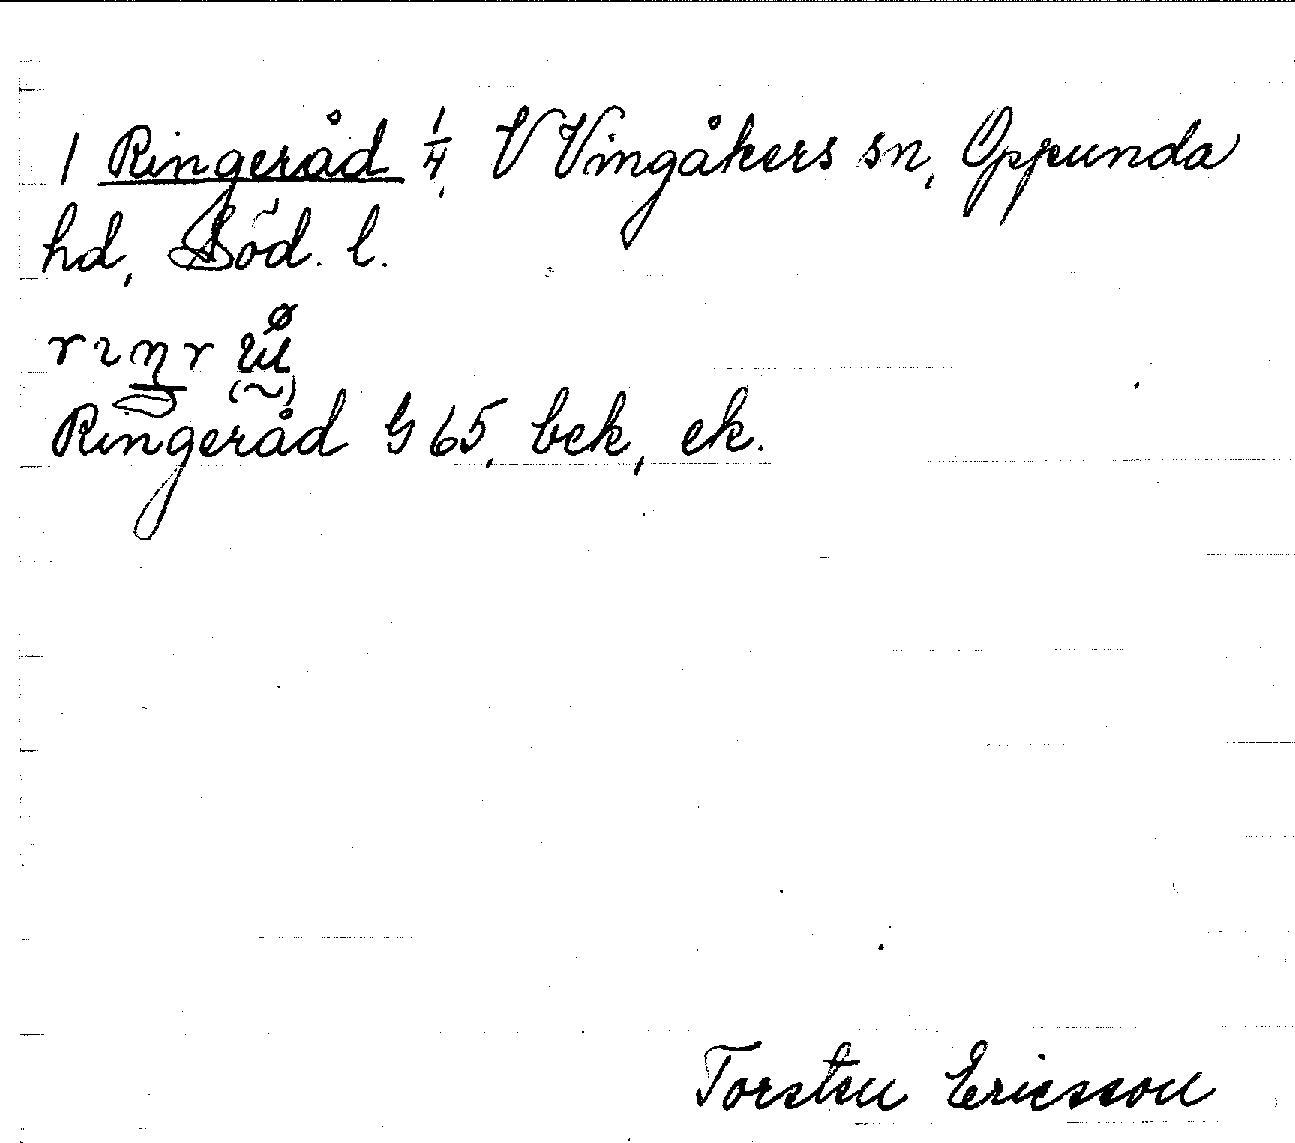 1 Ringeråd 1/4, V Vingåkers sn, Oppunda
hd, Söd. l.
Ringeråd G 65, bek, ek.
Torsten Ericsson